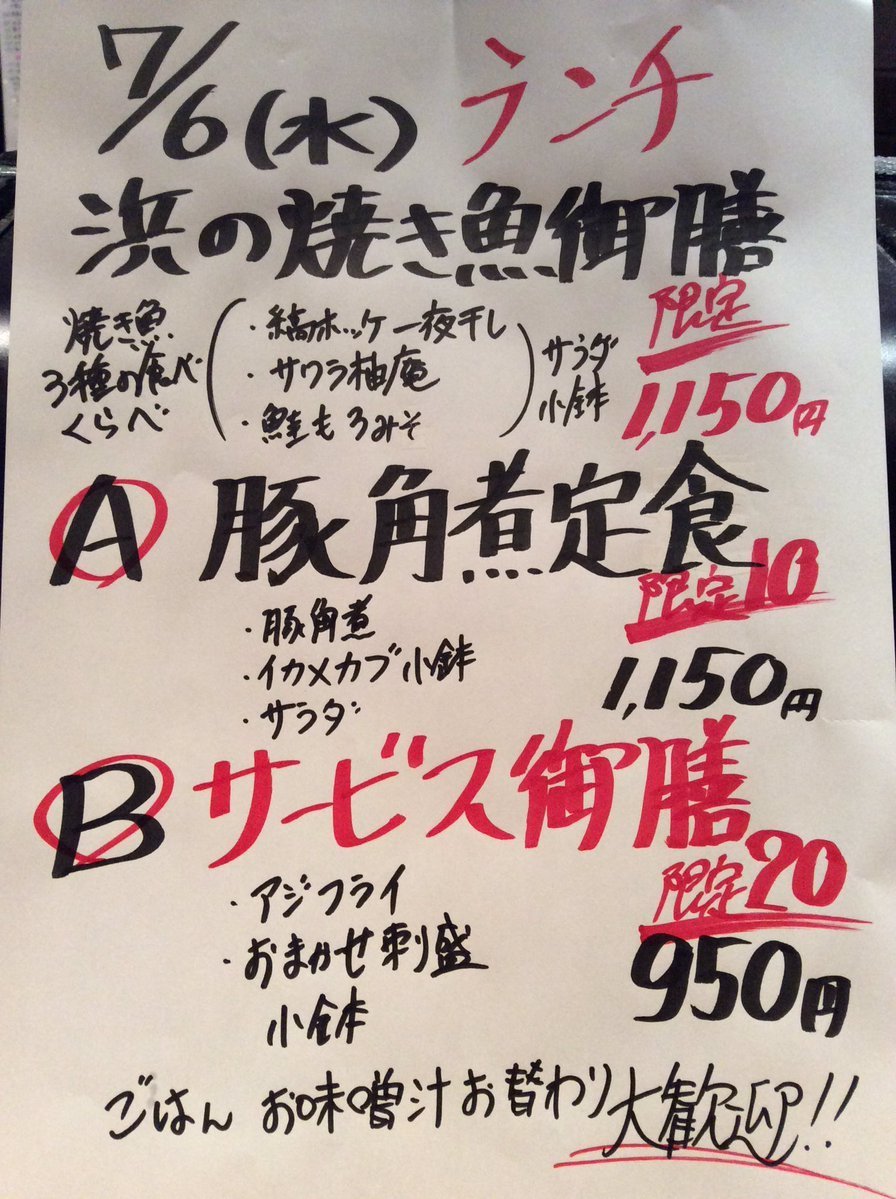 7/6(水) ランチ
浜の焼き魚御膳
限定
焼き魚
3種の食べ
くらべ
・縞ホッケ一夜干し
・サワラ柚庵
・鮭もろみそ
サラダ
小鉢
1,150円
A 豚角煮定食
限定10
・豚角煮
・イカメカブ小鉢
・サラダ
1,150円
B サービス御膳
限定20
・アジフライ
・おまかせ刺盛
小鉢
950円
ごはん お味噌汁お替わり大歓迎!!